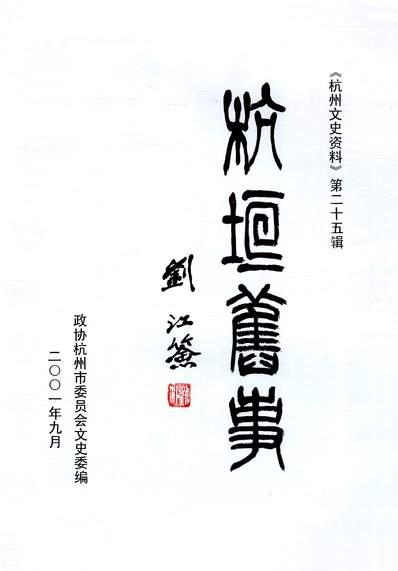 《杭州文史资料》第二十五辑
杭垣舊事
劉江簽
政协杭州市委员会文史委编
二〇〇一年九月